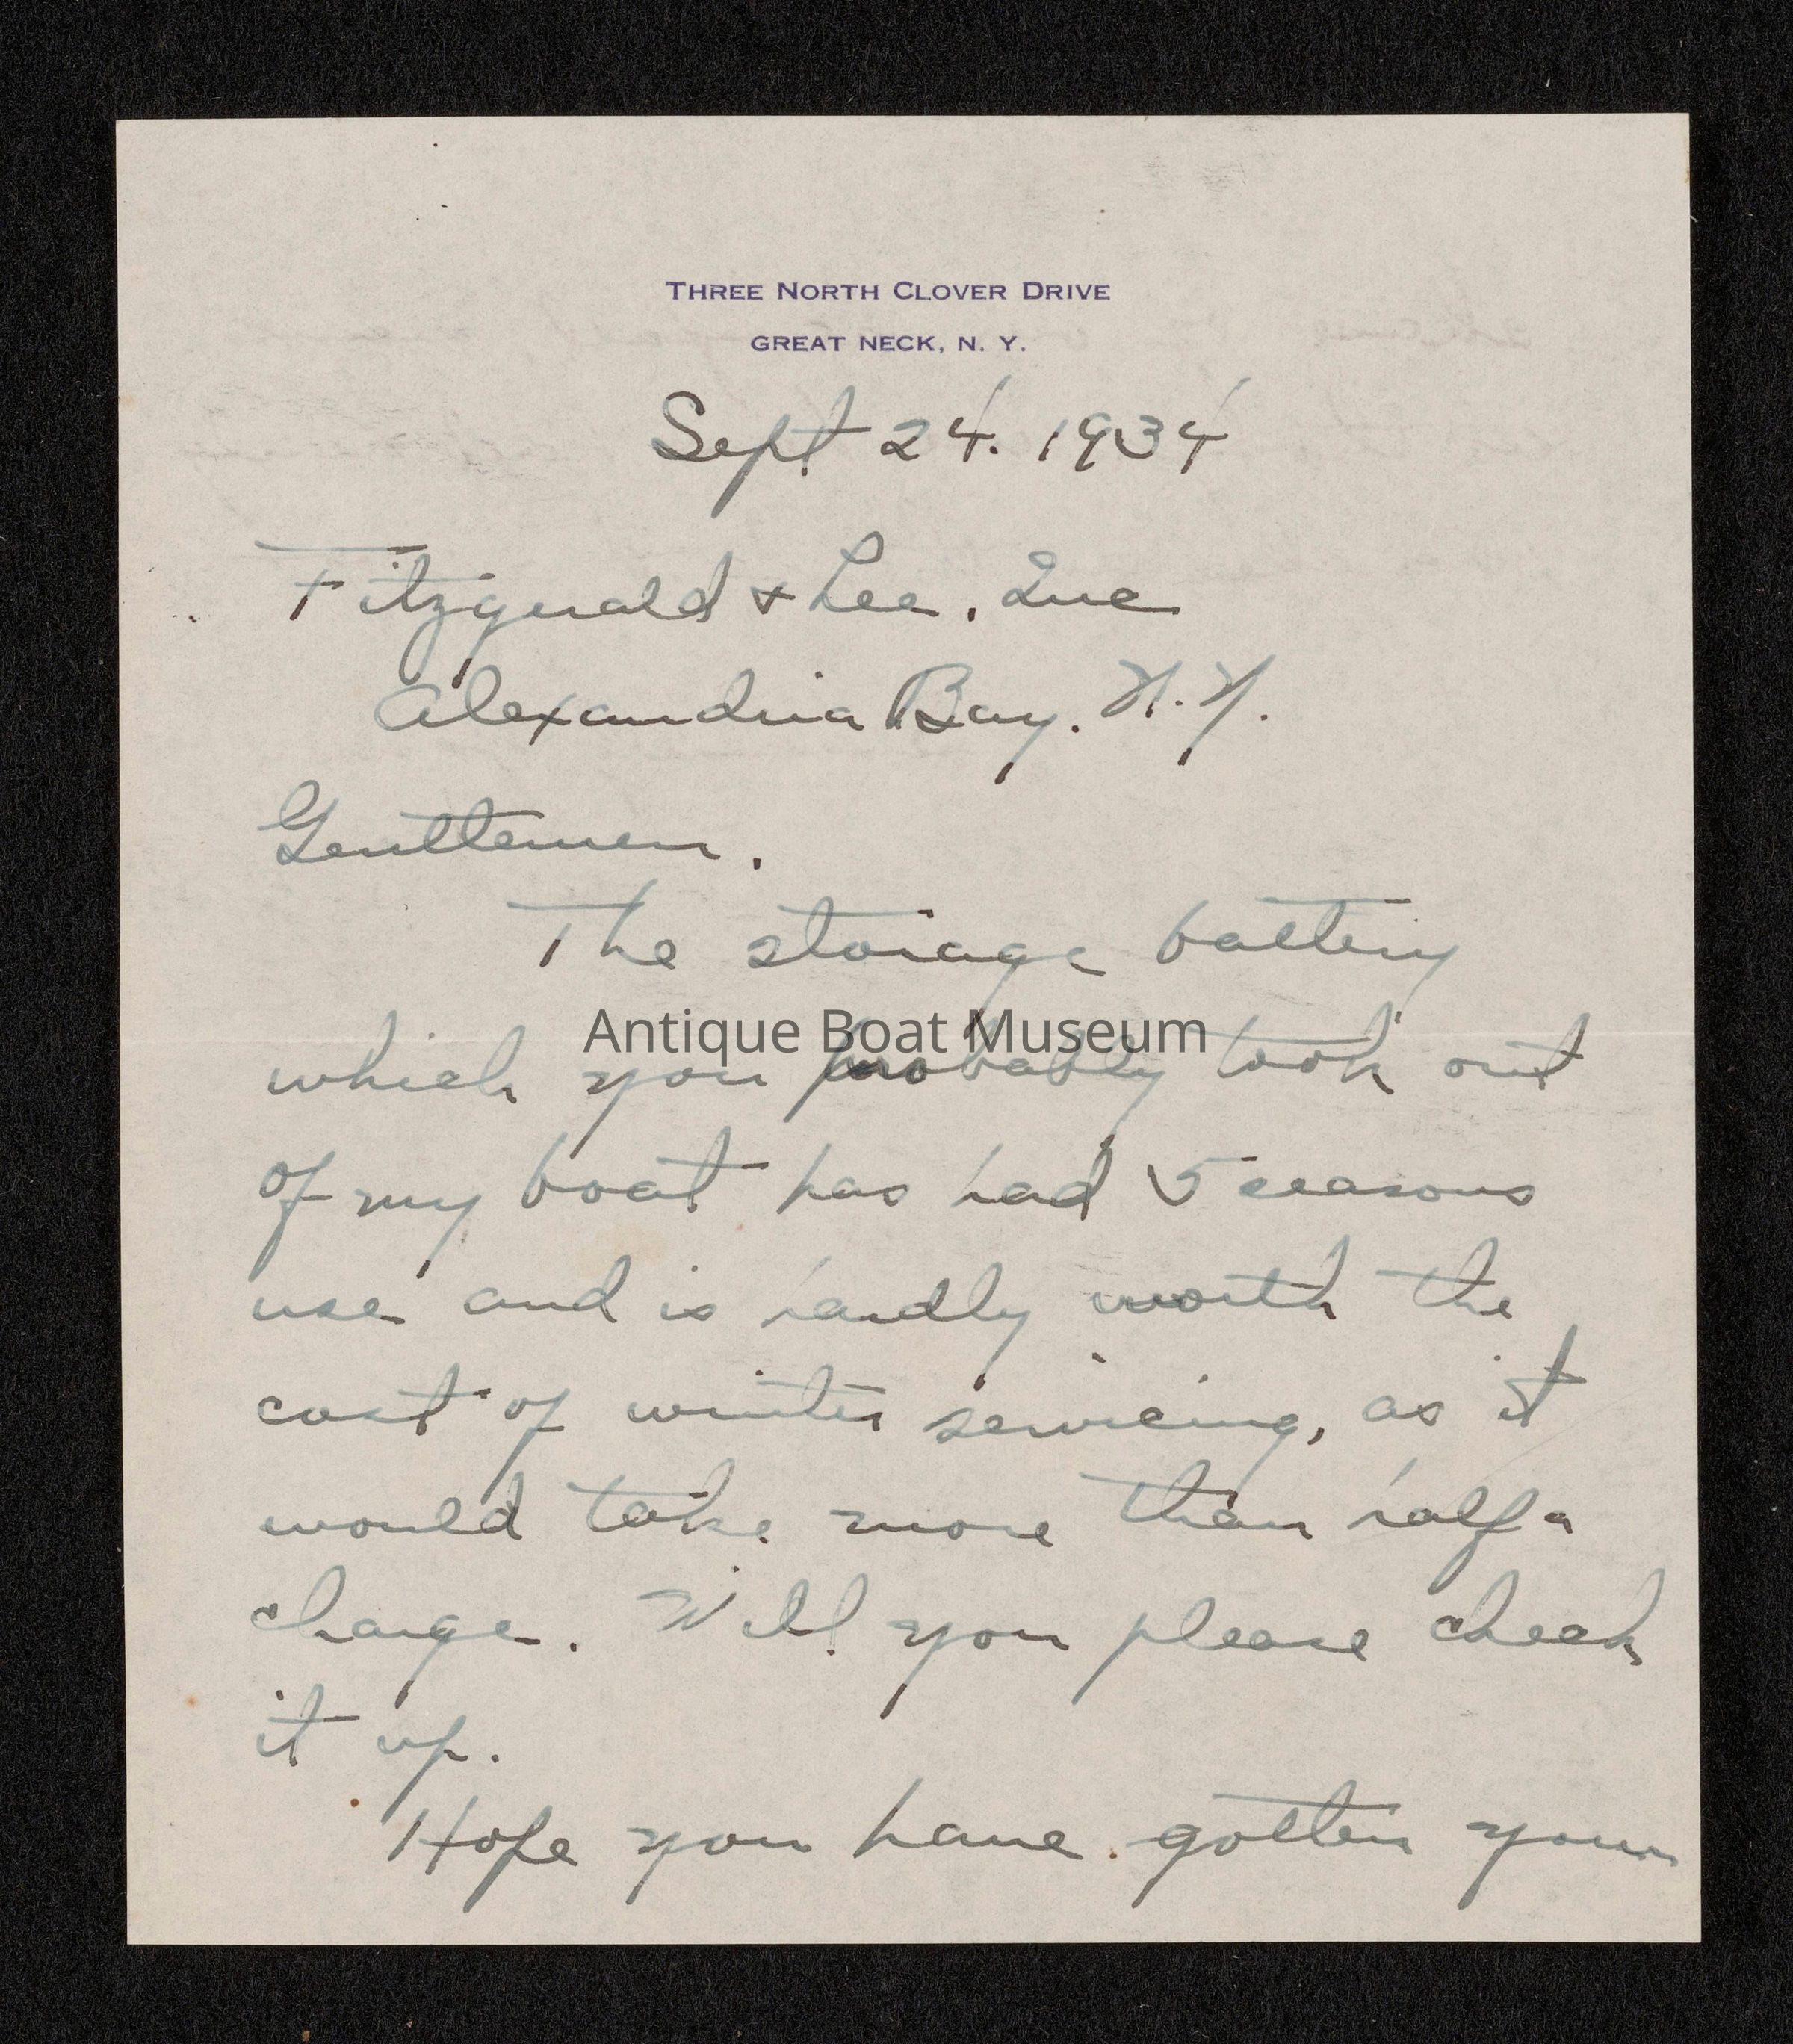 THREE NORTH CLOVER DRIVE
GREAT NECK, N. Y.
Sept 24. 1934
Fitzgerald & Lee, Inc
Alexandria Bay. N.Y.
Gentlemen.
The storage battery
Antique Boat Museum
which you probably took out
of my boat has had 5 seasons
use and is hardly worth the
cost of winter servicing, as it
would take more than half a
charge. Will you please check
it up.
Hope you have gotten your